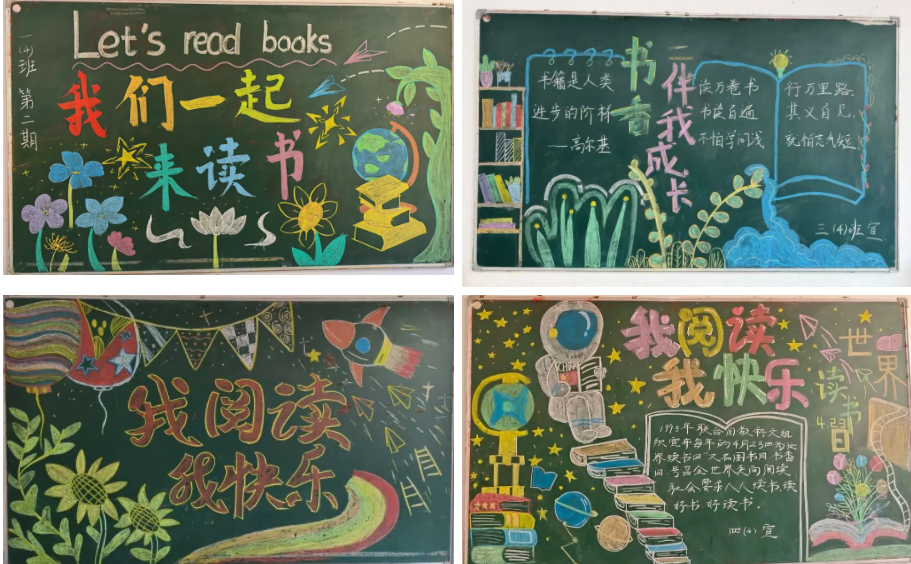 Let's read books
一(4)班 第二期
我们一起
来读书
书香
伴我成长
书籍是人类
进步的阶梯
——高尔基
读万卷书
书读百遍
不怕学问浅
行万里路
其义自见
就怕志气短
三(4)班宣
我阅读
我快乐
我阅读
我快乐
世界
读书日
4.23
CHINA
年联合国教科文组
织宣布每年的4月23日为世
界读书日"又名图书日
日.号召全世界走向阅读
社会要求人人读书,读
好书,好读书.
四(4)宣